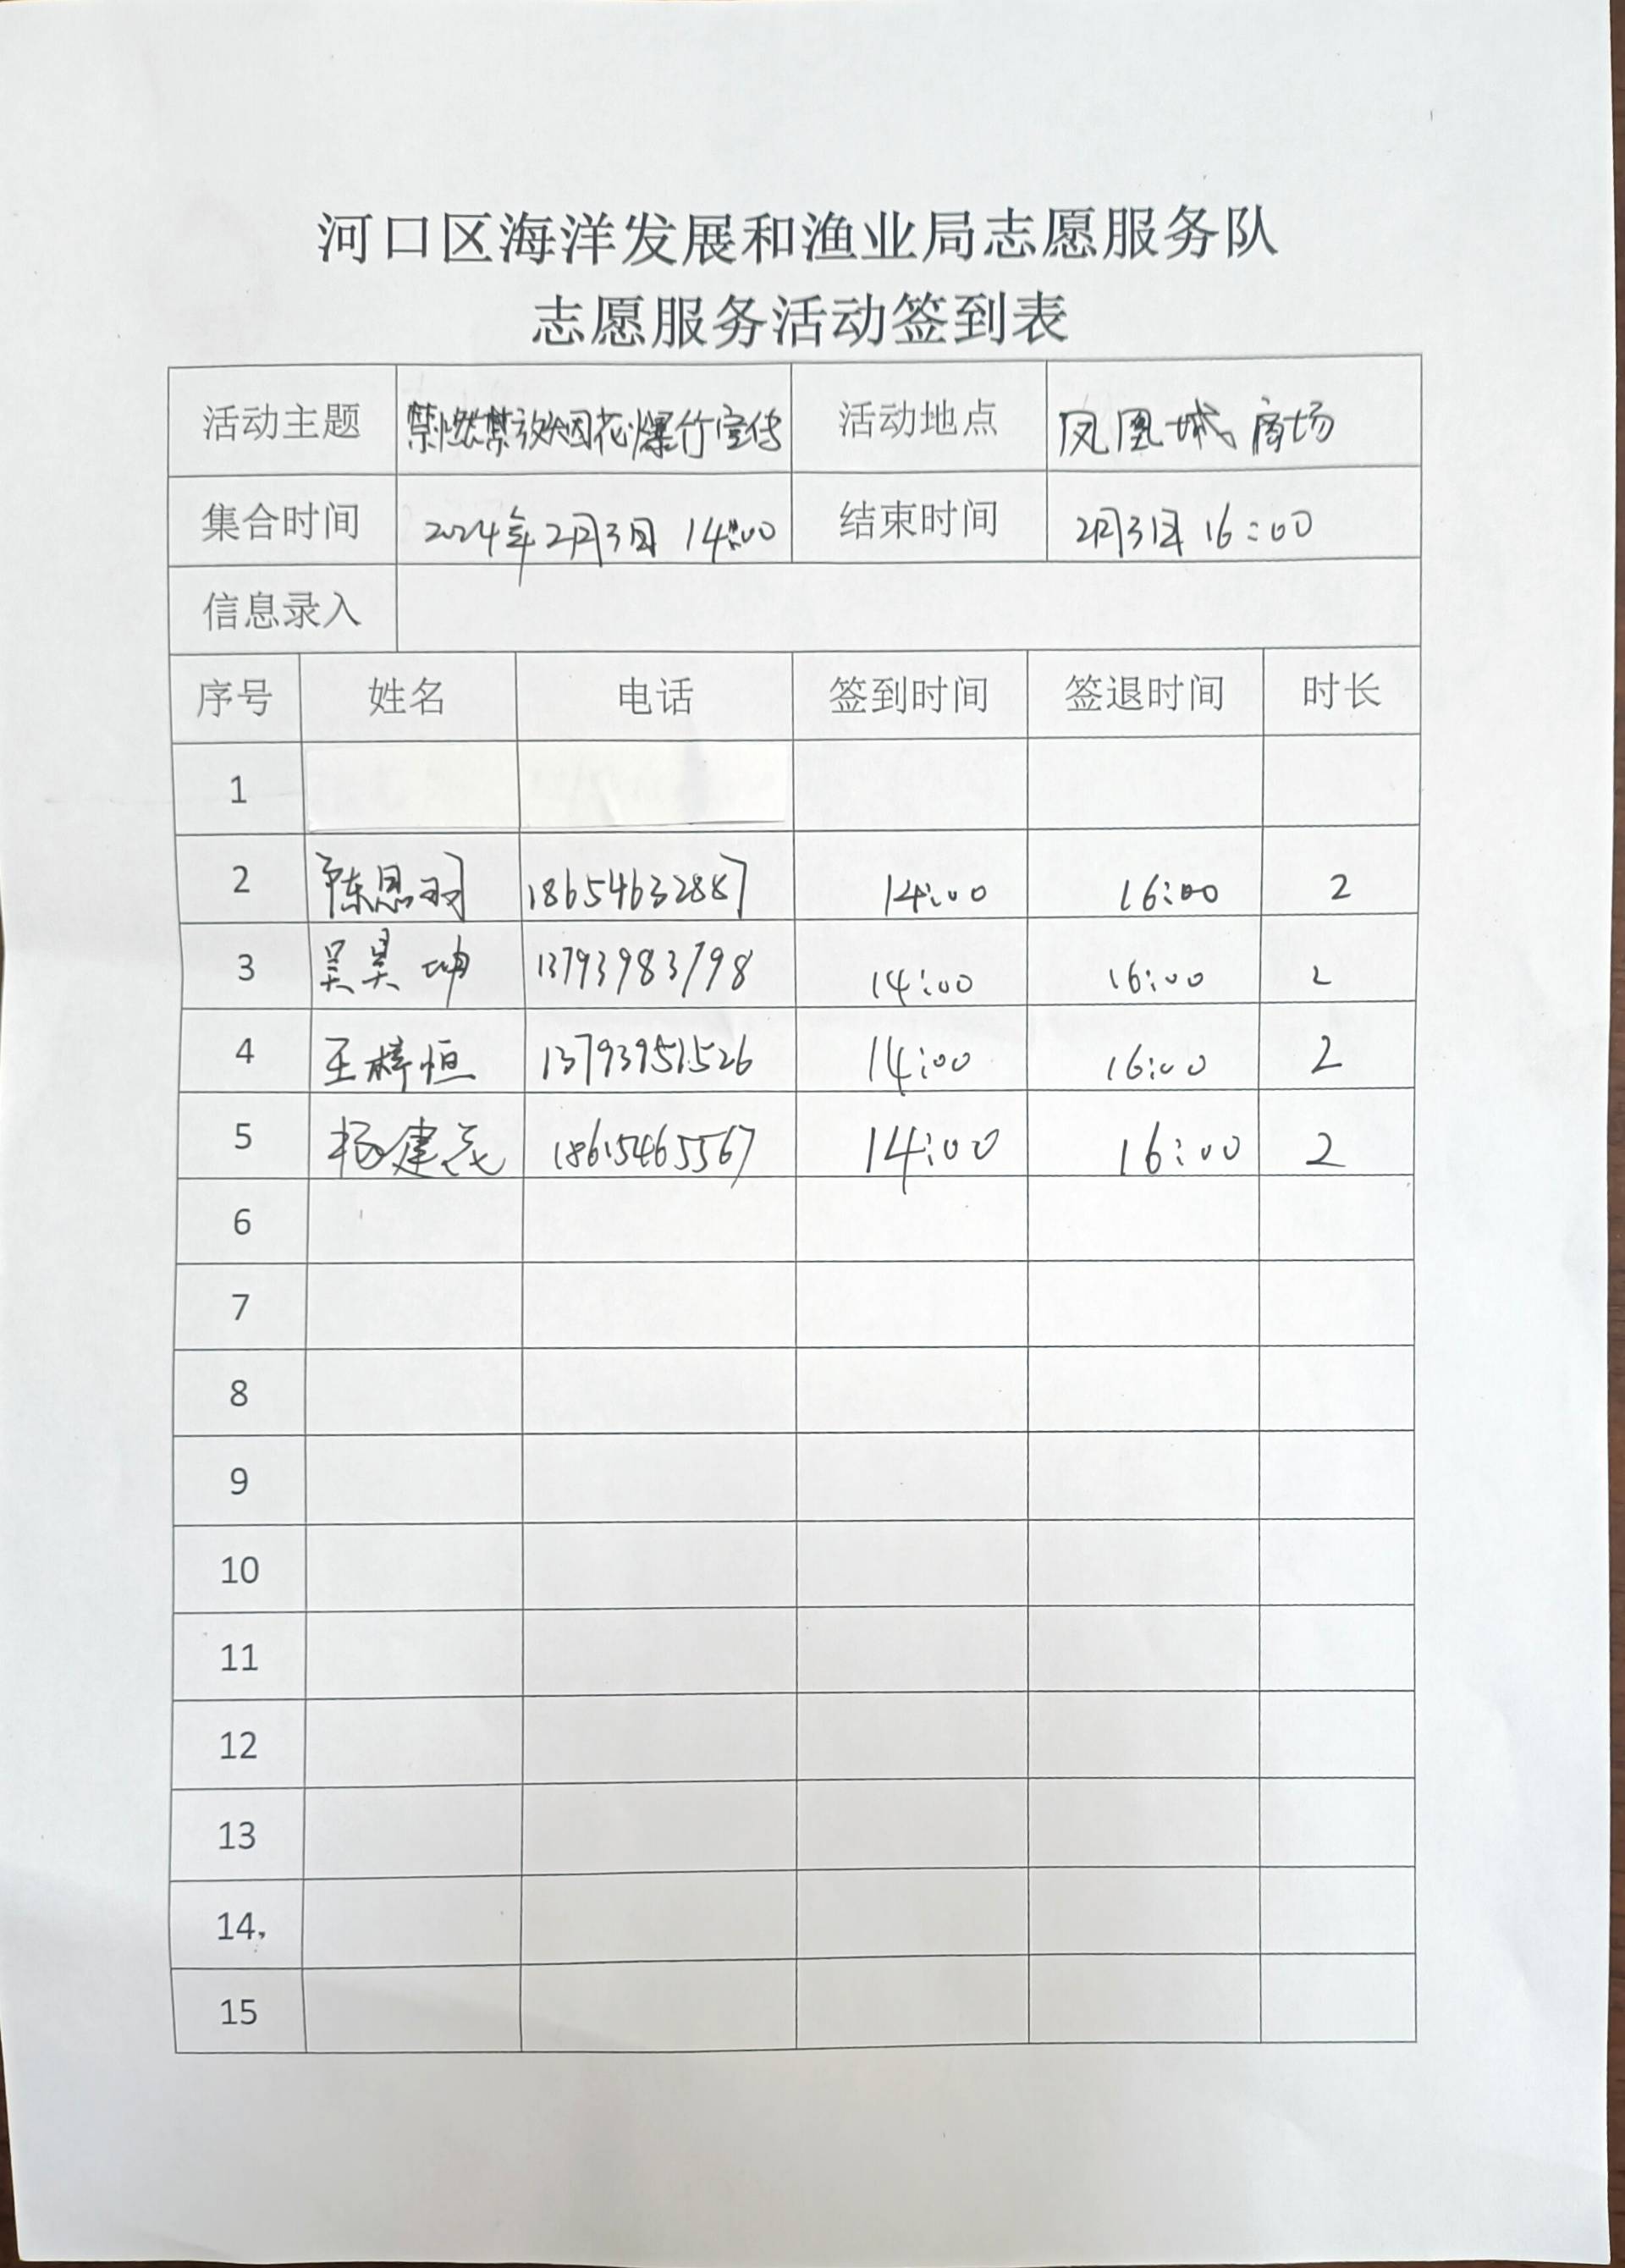 河口区海洋发展和渔业局志愿服务队
志愿服务活动签到表
活动主题 禁燃禁放烟花爆竹宣传 活动地点 凤凰城商场
集合时间 2024年2月3日 14:00 结束时间 2月3日 16:00
信息录入
序号 姓名 电话 签到时间 签退时间 时长
1
2 陈思羽 18654632887 14:00 16:00 2
3 吴昊坤 13793983798 14:00 16:00 2
4 王梓恒 13793951526 14:00 16:00 2
5 杨建 18615465567 14:00 16:00 2
6
7
8
9
10
11
12
13
14
15